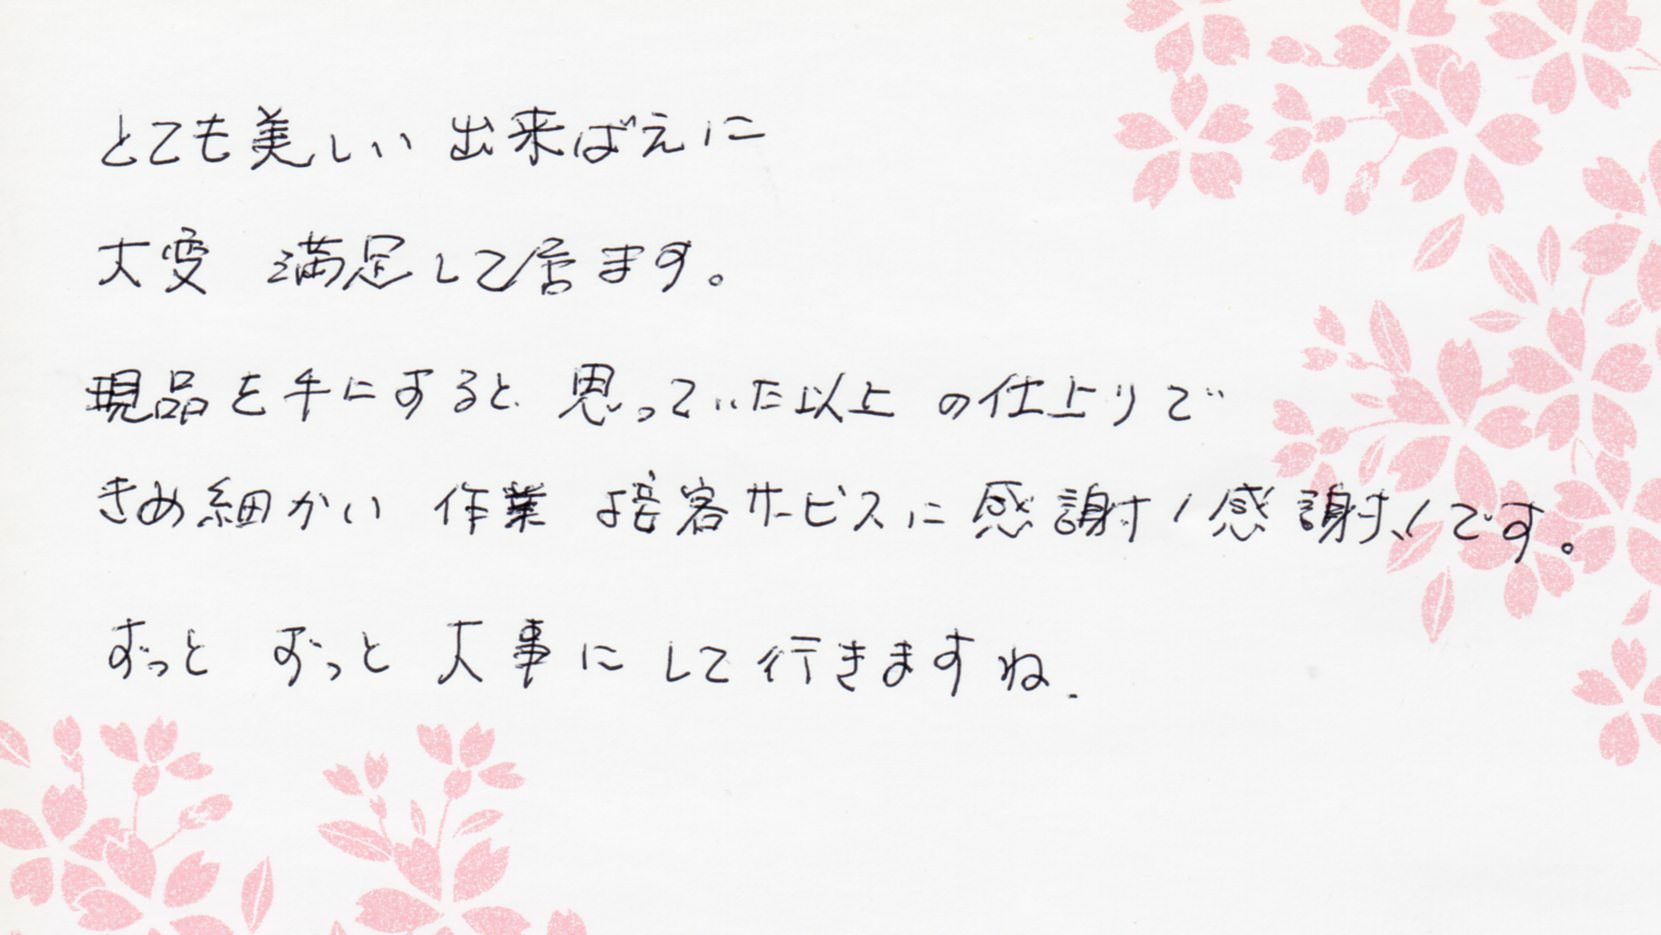 とても美しい 出来ばえに
大変 満足して居ます。
現品を手にすると 思っていた以上 の仕上りで
きめ細かい 作業 接客サービスに 感謝!感謝!です。
ずっと ずっと 大事に して行きますね.